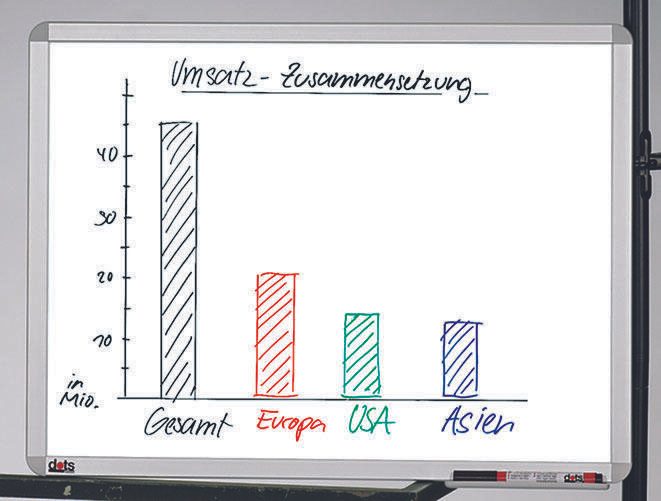 Umsatz - Zusammensetzung
40
30
20
10
in
Mio.
Gesamt Europa USA Asien
dots
dots